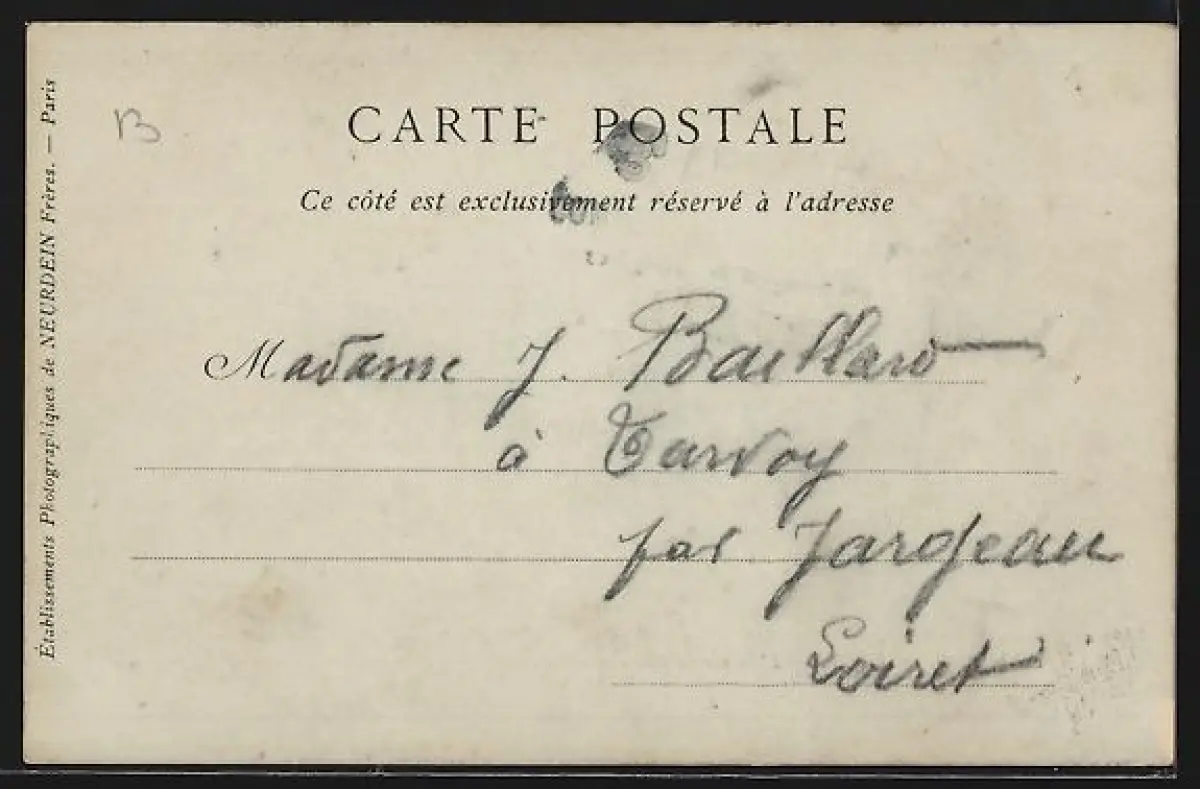 Établissements Photographiques de NEURDEIN Frères. — Paris
B
CARTE POSTALE
Ce côté est exclusivement réservé à l'adresse
Madame J. Baillard
à Tarvoy
par Jargeau
Loiret